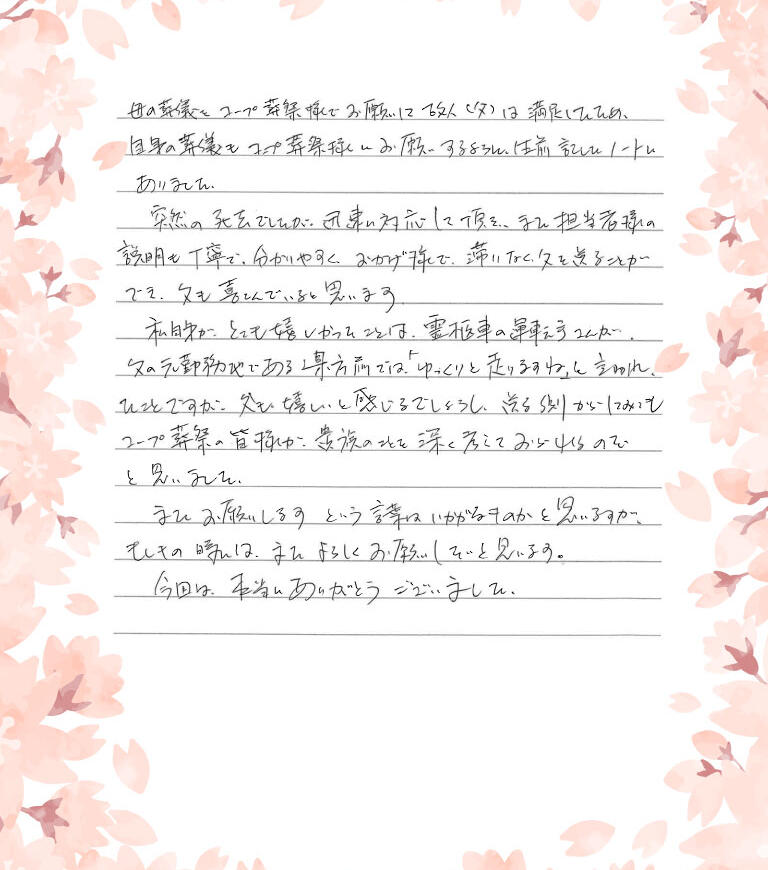 母の葬儀をコープ葬祭様でお願いして故人(父)は満足していため、
自身の葬儀もコープ葬祭様にお願いするように、生前記したノートに
ありました。
突然の死去でしたが、迅速に対応して頂き、また担当者様の
説明も丁寧で、分かりやすく、おかげ様で、滞りなく父を送ることが
でき、父も喜んでいると思います。
私自身が、とても嬉しかったことは、霊柩車の運転手さんが、
父の元勤務地である県庁前では「ゆっくりと走りますね」と言われ、
ひことですが、父も嬉しいと感じるでしょうし、送る側からしてみても
コープ葬祭の皆様が、貴族のことを深く考えておられるのだ
と思いました。
またお願いしますという言葉はいかがなものかと思いますが、
もしその時には、またよろしくお願いしたいと思います。
今回は、本当にありがとうございました。